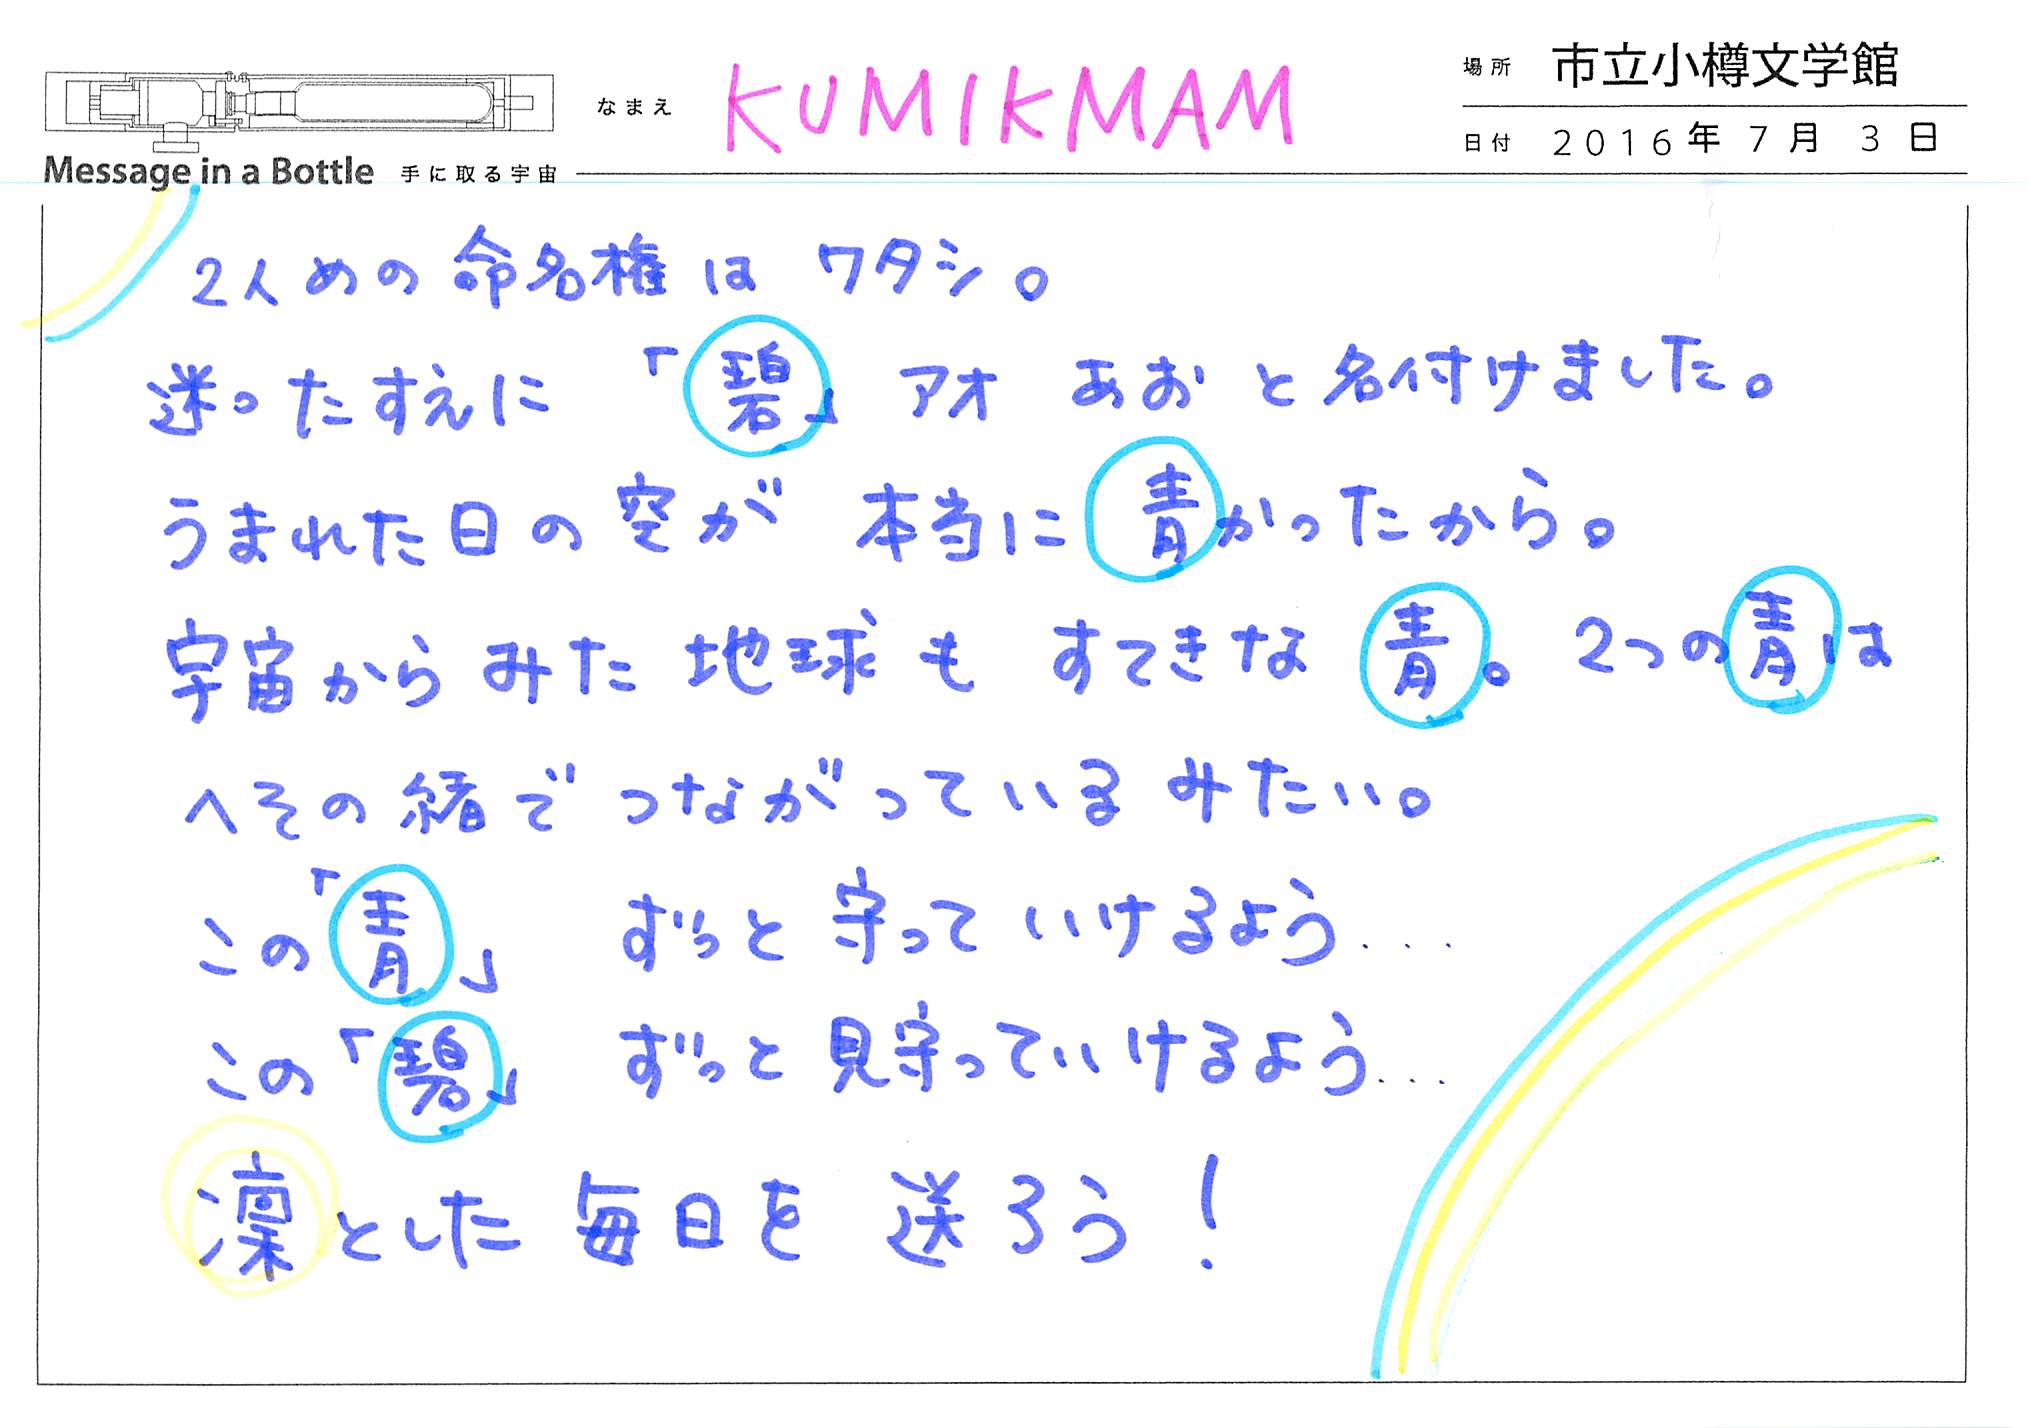 Message in a Bottle 手に取る宇宙
なまえ KUMIKMAM
場所 市立小樽文学館
日付 2016年 7月 3日
2人めの命名権は ワタシ。
迷ったすえに 「碧」 アオ あお と名付けました。
うまれた日の空が 本当に青かったから。
宇宙からみた地球も すてきな青。2つの青は
へその緒でつながっているみたい。
この「青」 ずっと守っていけるよう...
この「碧」 ずっと見守っていけるよう...
凛とした毎日を送ろう!